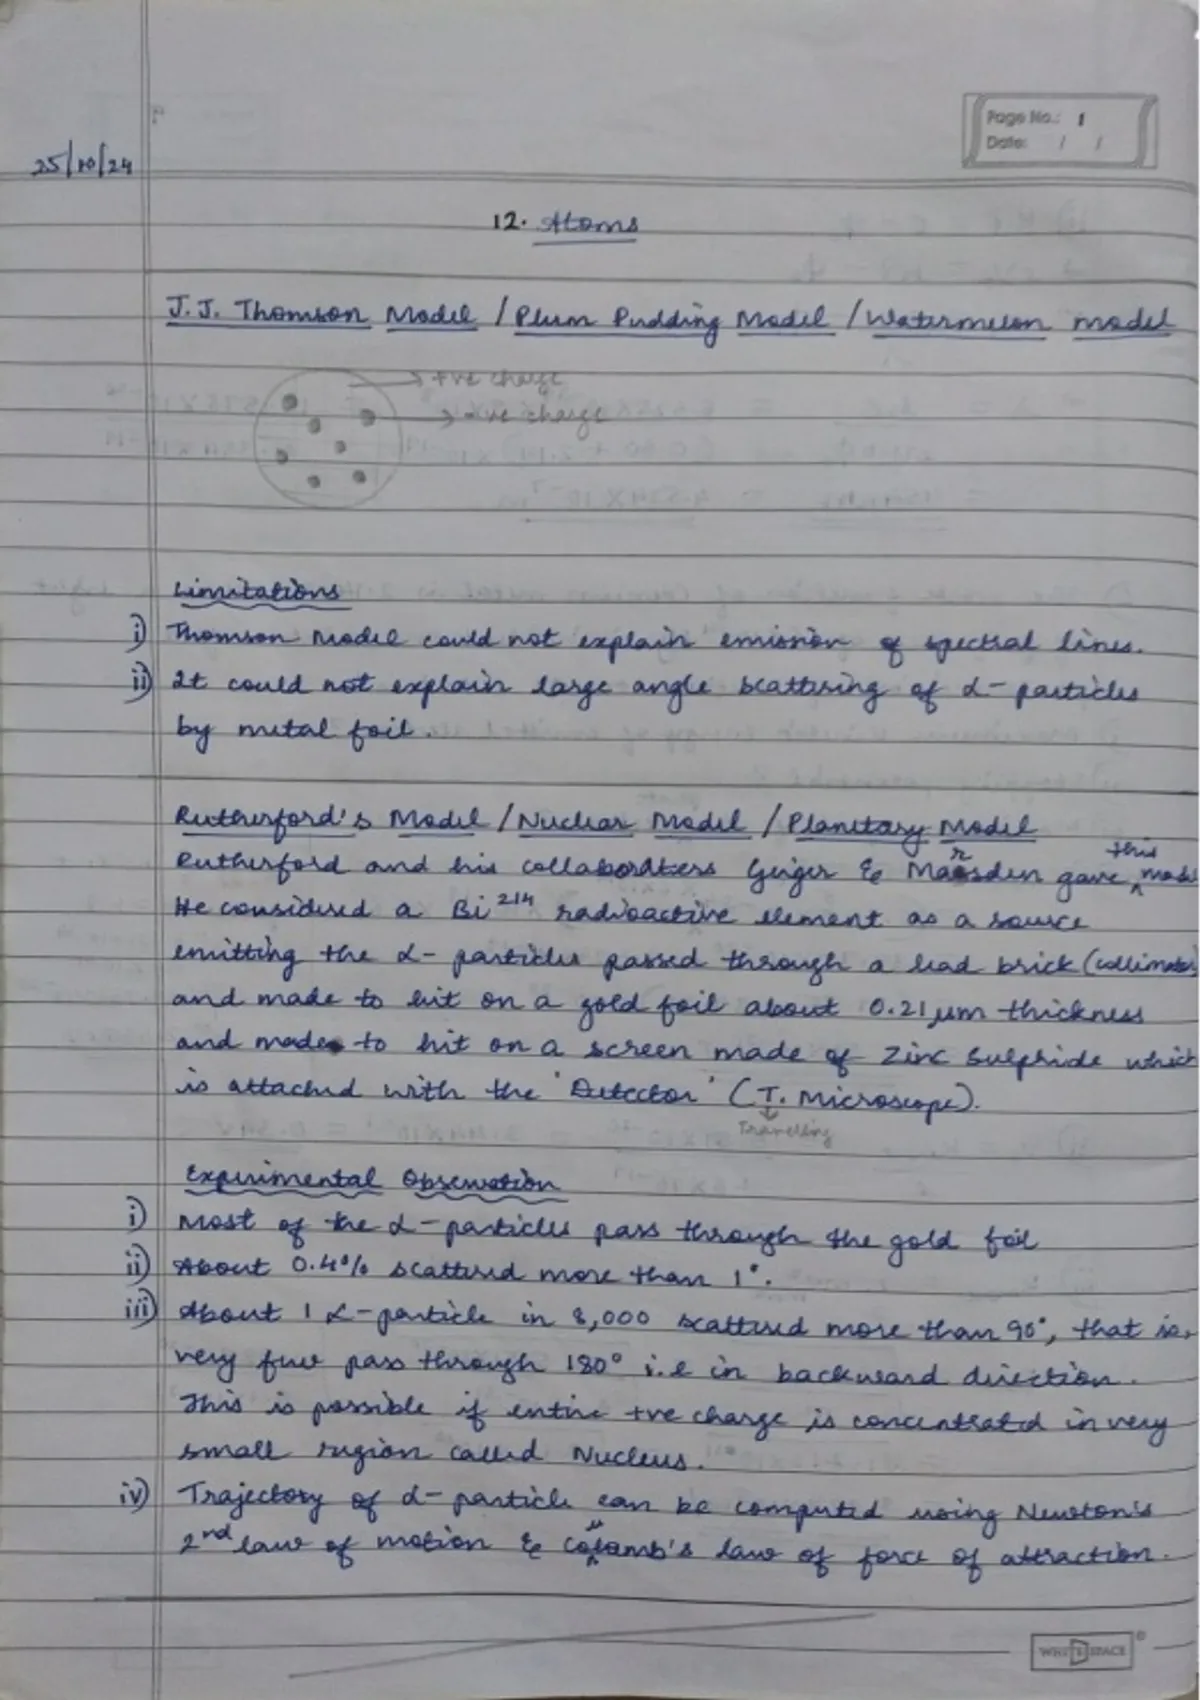 Page No.: 1
Date: / /
25/10/24
12. Atoms
J.J. Thomson Model / Plum Pudding Model / Watermelon model
+ve charge
-ve charge
Limitations
i) Thomson Model could not explain emission of spectral lines.
ii) It could not explain large angle scattering of α- particles
by metal foil.
Rutherford's Model / Nuclear Model / Planetary Model
Rutherford and his collaborators Geiger & Marsden gave this model
He considered a Bi²¹⁴ radioactive element as a source
emitting the α- particles passed through a lead brick (collimator)
and made to hit on a gold foil about 0.21 μm thickness
and made to hit on a screen made of Zinc Sulphide which
is attached with the 'Detector' (T. Microscope).
Travelling
Experimental Observation
i) Most of the α-particles pass through the gold foil
ii) About 0.4% scattered more than 1°.
iii) About 1 α-particle in 8,000 scattered more than 90°, that is,
very few pass through 180° i.e in backward direction.
This is possible if entire +ve charge is concentrated in very
small region called Nucleus.
iv) Trajectory of α- particle can be computed using Newton's
2nd law of motion & Coulomb's law of force of attraction.
WHITESPACE